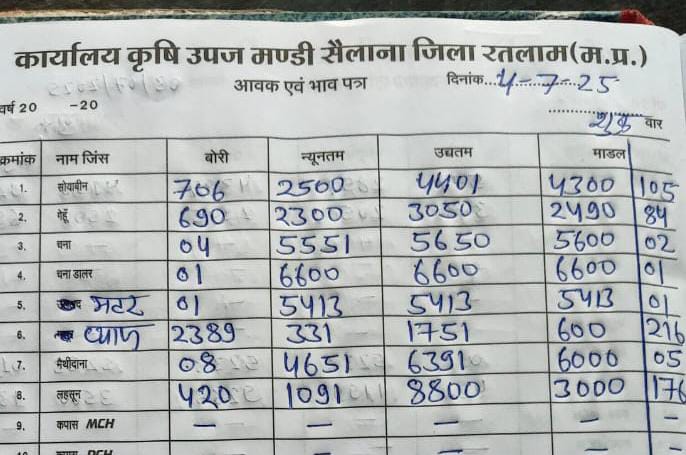 कार्यालय कृषि उपज मण्डी सैलाना जिला रतलाम(म.प्र.)
आवक एवं भाव पत्रा दिनांक...4-7-25
वर्ष 20 -20
शुक्र वार
क्रमांक नाम जिंस बोरी न्यूनतम उद्यतम माडल
1. सोयाबीन 706 2500 4401 4300 105
2. गेहूँ 690 2300 3050 2490 84
3. चना 04 5551 5650 5600 02
4. चना डालर 01 6600 6600 6600 01
5. मटर 01 5413 5413 5413 01
6. प्याज 2389 331 1751 600 216
7. मैथीदाना 08 4651 6391 6000 05
8. लहसून 420 1091 8800 3000 176
9. कपास MCH – – – – –